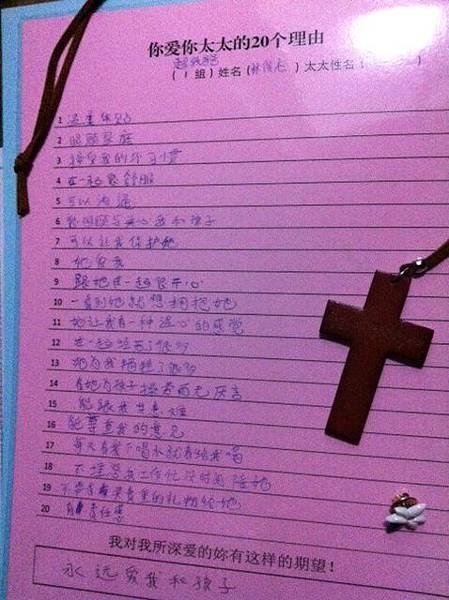 你爱你太太的20个理由
(1组)姓名() 太太性名:
1 温柔体贴
2 照顾家庭
3 接受我的坏习惯
4 在一起很舒服
5 可以沟通
6 我和孩子
7 可以让我保护她
8 她爱我
9 跟她在一起很开心
10 一看到她就想拥抱她
11 她让我有一种温心的感觉
12 在一起吃苦了很多
13 她为我牺牲了很多
14 她为孩子而无厌言
15 能跟我共患难
16 能尊重我的意见
17 每天有爱下喝水就有给我喝
18 不埋怨我工作忙没时间陪她
19 不贵重的礼物给她
20 有责任感
我对我所深爱的妳有这样的期望！
永远爱我和孩子